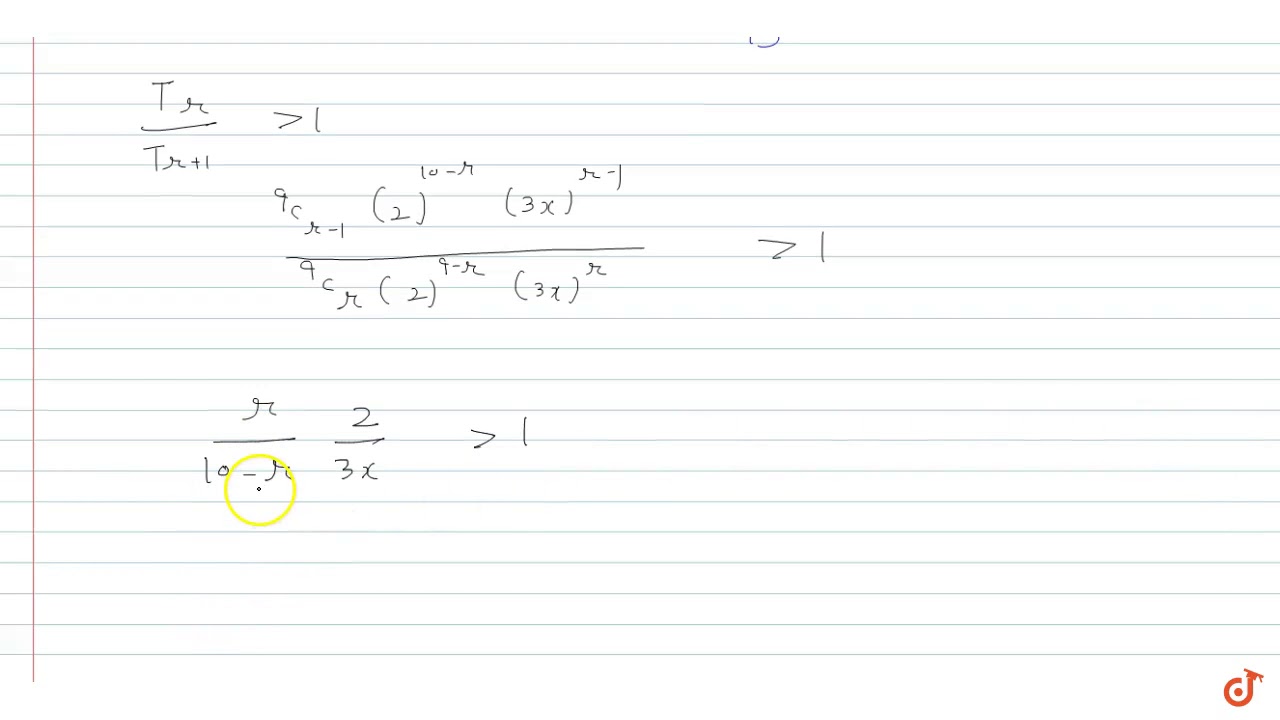 Tr / Tr+1 > 1
9Cr-1 (2)^10-r (3x)^r-1 / 9Cr (2)^9-r (3x)^r > 1
r / 10-r 2 / 3x > 1